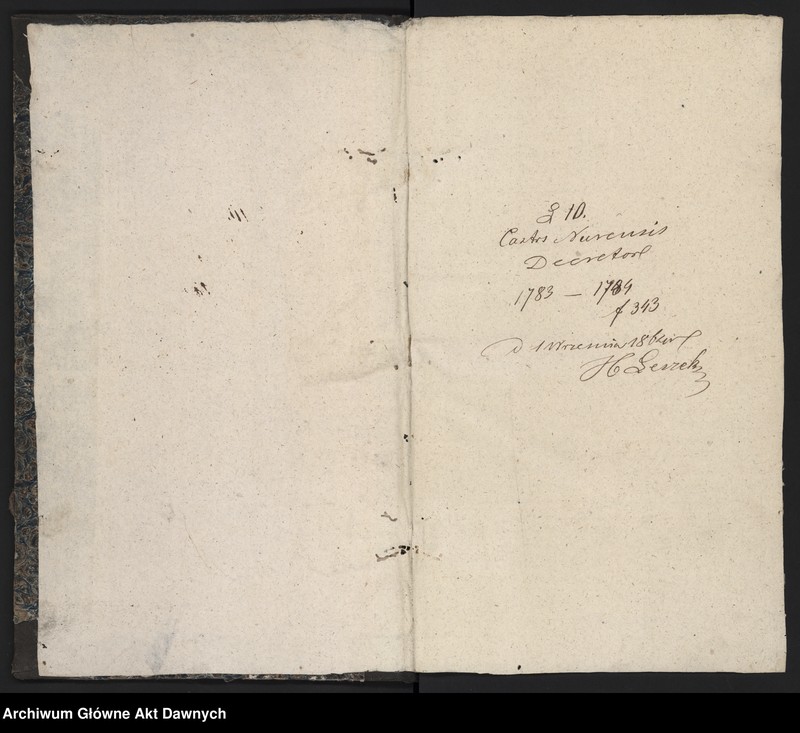 10.
Castr Nurensis
Decretor
1783 — 1784
f 343
d 1 Września
H Leszek
Archiwum Główne Akt Dawnych